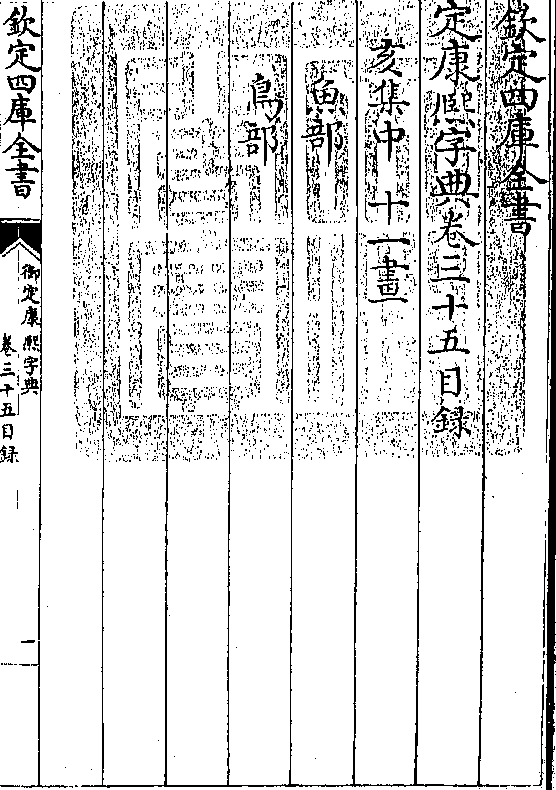 欽定四庫全書
定康熙字典卷三十五目録
亥集中 十一畫
魚部
鳥部
欽定四庫全書
御定康熙字典
卷三十五目録
一